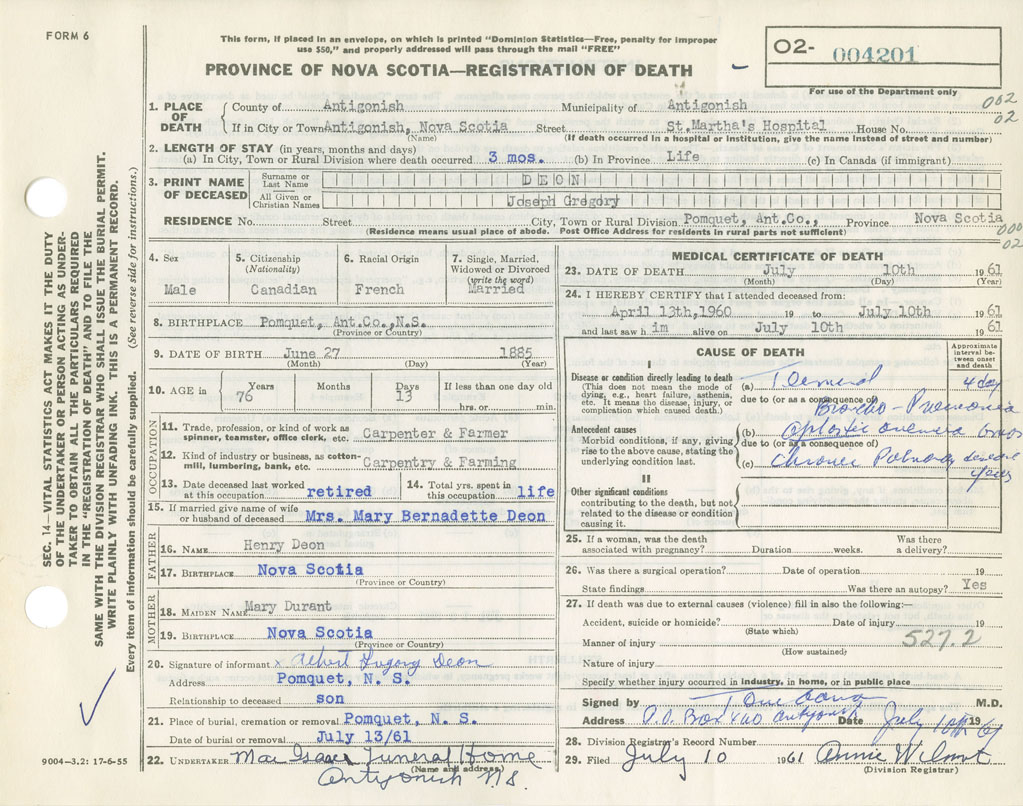 FORM 6
This form, if placed in an envelope, on which is printed "Dominion Statistics—Free, penalty for improper
use $50," and properly addressed will pass through the mail "FREE"
PROVINCE OF NOVA SCOTIA—REGISTRATION OF DEATH
O2- 004201
For use of the Department only
002
02
1. PLACE OF DEATH
County of Antigonish Municipality of Antigonish
If in City or Town Antigonish, Nova Scotia Street St. Martha's Hospital House No.
(Name) (If death occurred in a hospital or institution, give the name instead of street and number)
2. LENGTH OF STAY (in years, months and days)
(a) In City, Town or Rural Division where death occurred 3 mos. (b) In Province Life (c) In Canada (if immigrant)
3. PRINT NAME OF DECEASED
Surname or Last Name DEON
All Given or Christian Names Joseph Gregory
RESIDENCE No. Street City, Town or Rural Division Pomquet, Ant.Co., Province Nova Scotia
(Residence means usual place of abode. Post Office Address for residents in rural parts not sufficient)
000
02
4. Sex Male
5. Citizenship (Nationality) Canadian
6. Racial Origin French
7. Single, Married, Widowed or Divorced (write the word) Married
8. BIRTHPLACE Pomquet, Ant.Co.,N.S.
(Province or Country)
9. DATE OF BIRTH June 27 1885
(Month) (Day) (Year)
10. AGE in Years 76 Months Days 13 If less than one day old hrs. or min.
OCCUPATION
11. Trade, profession, or kind of work as spinner, teamster, office clerk, etc. Carpenter & Farmer
12. Kind of industry or business, as cotton-mill, lumbering, bank, etc. Carpentry & Farming
13. Date deceased last worked at this occupation retired
14. Total yrs. spent in this occupation life
15. If married give name of wife or husband of deceased Mrs. Mary Bernadette Deon
FATHER
16. NAME Henry Deon
17. BIRTHPLACE Nova Scotia
(Province or Country)
MOTHER
18. MAIDEN NAME Mary Durant
19. BIRTHPLACE Nova Scotia
(Province or Country)
20. Signature of informant x Albert Gregory Deon
Address Pomquet, N. S.
Relationship to deceased son
21. Place of burial, cremation or removal Pomquet, N. S.
Date of burial or removal July 13/61
22. UNDERTAKER MacIsaac Funeral Home
(Name and address) Antigonish N.S.
MEDICAL CERTIFICATE OF DEATH
23. DATE OF DEATH July 10th 1961
(Month) (Day) (Year)
24. I HEREBY CERTIFY that I attended deceased from:
April 13th,1960 19 to July 10th 1961
and last saw h im alive on July 10th 1961
CAUSE OF DEATH
Approximate interval between onset and death
I
Disease or condition directly leading to death
(This does not mean the mode of dying, e.g., heart failure, asthenia, etc. It means the disease, injury, or complication which caused death.)
(a) Terminal 4 day
due to (or as a consequence of)
Broncho-Pneumonia
Antecedent causes
Morbid conditions, if any, giving rise to the above cause, stating the underlying condition last.
(b) aplastic anemia
due to (or as a consequence of)
(c) Chronic Pulmonary disease
years
II
Other significant conditions
contributing to the death, but not related to the disease or condition causing it.
25. If a woman, was the death associated with pregnancy? Duration weeks. Was there a delivery?
26. Was there a surgical operation? Date of operation 19
State findings Was there an autopsy? Yes
27. If death was due to external causes (violence) fill in also the following:—
Accident, suicide or homicide? Date of injury 19
(State which)
Manner of injury 527.2
(How sustained)
Nature of injury
Specify whether injury occurred in industry, in home, or in public place
Signed by M.D.
Address P.O. Box Antigonish Date July 10th 1961
28. Division Registrar's Record Number
29. Filed July 10 1961 Annie Wilmot
(Division Registrar)
9004–3.2: 17-6-55
SEC. 14—VITAL STATISTICS ACT MAKES IT THE DUTY
OF THE UNDERTAKER OR PERSON ACTING AS UNDER-
TAKER TO OBTAIN ALL THE PARTICULARS REQUIRED
IN THE "REGISTRATION OF DEATH" AND TO FILE THE
SAME WITH THE DIVISION REGISTRAR WHO SHALL ISSUE THE BURIAL PERMIT.
WRITE PLAINLY WITH UNFADING INK. THIS IS A PERMANENT RECORD.
Every item of information should be carefully supplied. (See reverse side for instructions.)